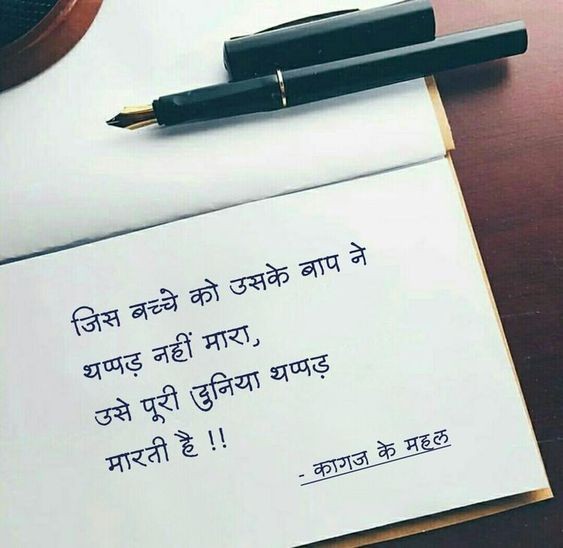 जिस बच्चे को उसके बाप ने
थप्पड़ नहीं मारा,
उसे पूरी दुनिया थप्पड़
मारती है !!
- कागज के महल